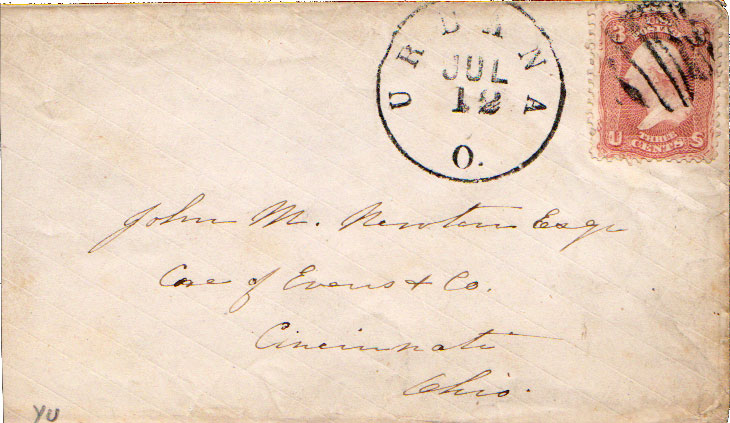 URBANA
JUL
12
O.
3 3
U S
THREE
CENTS
John M. Newton Esqr
Care of Evens & Co.
Cincinnati
Ohio.
YU